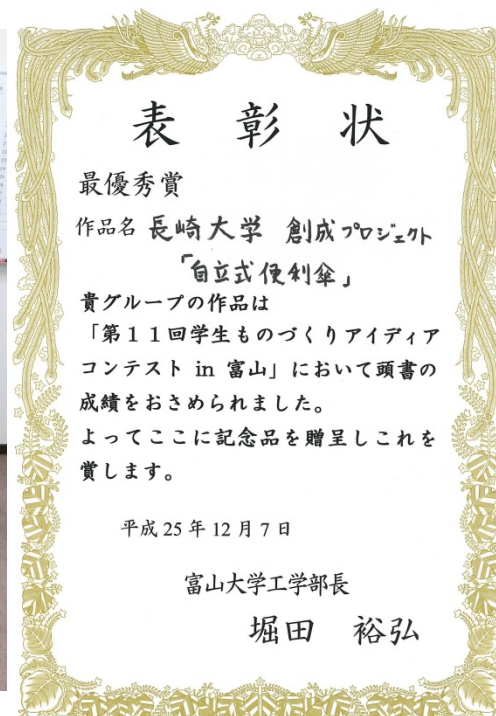 表彰状
最優秀賞
作品名 長崎大学 創成プロジェクト
「自立式便利傘」
貴グループの作品は
「第１１回学生ものづくりアイディア
コンテスト in 富山」において頭書の
成績をおさめられました。
よってここに記念品を贈呈しこれを
賞します。
平成25年12月7日
富山大学工学部長
堀田 裕弘